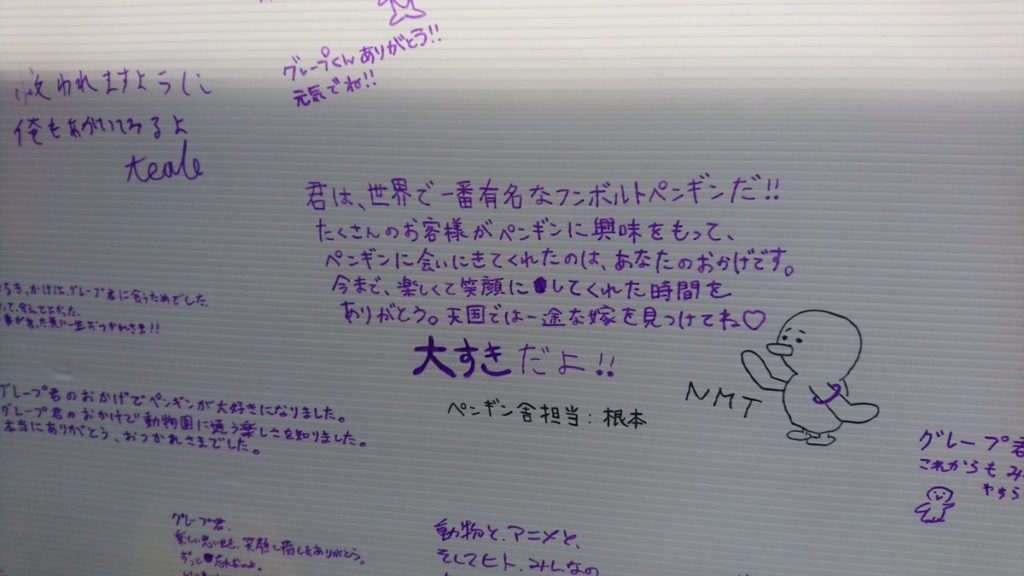 グレープくんありがとう!!
元気でね!!
われますように
俺もあがいてみるよ
君は、世界で一番有名なフンボルトペンギンだ!!
たくさんのお客様がペンギンに興味をもって、
ペンギンに会いにきてくれたのは、あなたのおかげです。
今まで、楽しくて笑顔にしてくれた時間を
ありがとう。天国では一途な嫁を見つけてね♡
大すきだよ!!
NMT
ペンギン舎担当:根本
かけは、グレープ君に会うためでした。
グレープ君のおかげでペンギンが大好きになりました。
グレープ君のおかげで動物園に通う楽しさを知りました。
本当にありがとう、おつかれさまでした。
グレープ君
これからもみ
グレープ君、
楽しい思い出を、笑顔と癒しをありがとう。
ずっと忘れないよ。
動物と、アニメと、
そしてヒト、みんなの